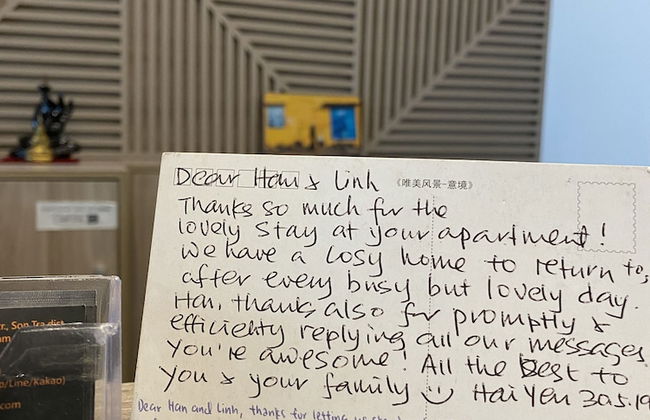 Dear Han & Linh
《唯美风景-意境》
Thanks so much for the
lovely stay at your apartment!
We have a cosy home to return to,
after every busy but lovely day.
Han, thanks also for promptly &
efficiently replying all our messages
You're awesome! All the best to
you & your family Hai Yen 30.5.19
Dear Han and Linh, thanks for letting us
Son Tra dist
am
o/Line/Kakao)